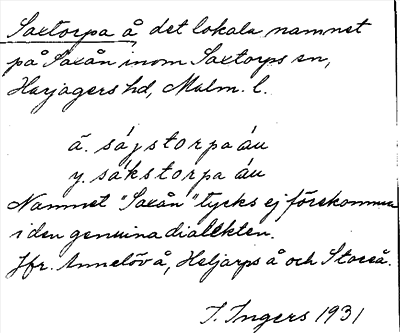 Saxtorpa å, det lokala namnet
på Saxån inom Saxtorps sn,
Harjagers hd, Malm. l.
ä. sájstorpa áu
y. sákstorpa áu
Namnet "Saxån" tycks ej förekomma
i den genuina dialekten.
Jfr. Annelöv å, Heljarps å och Stora å.
I. Ingers 1931